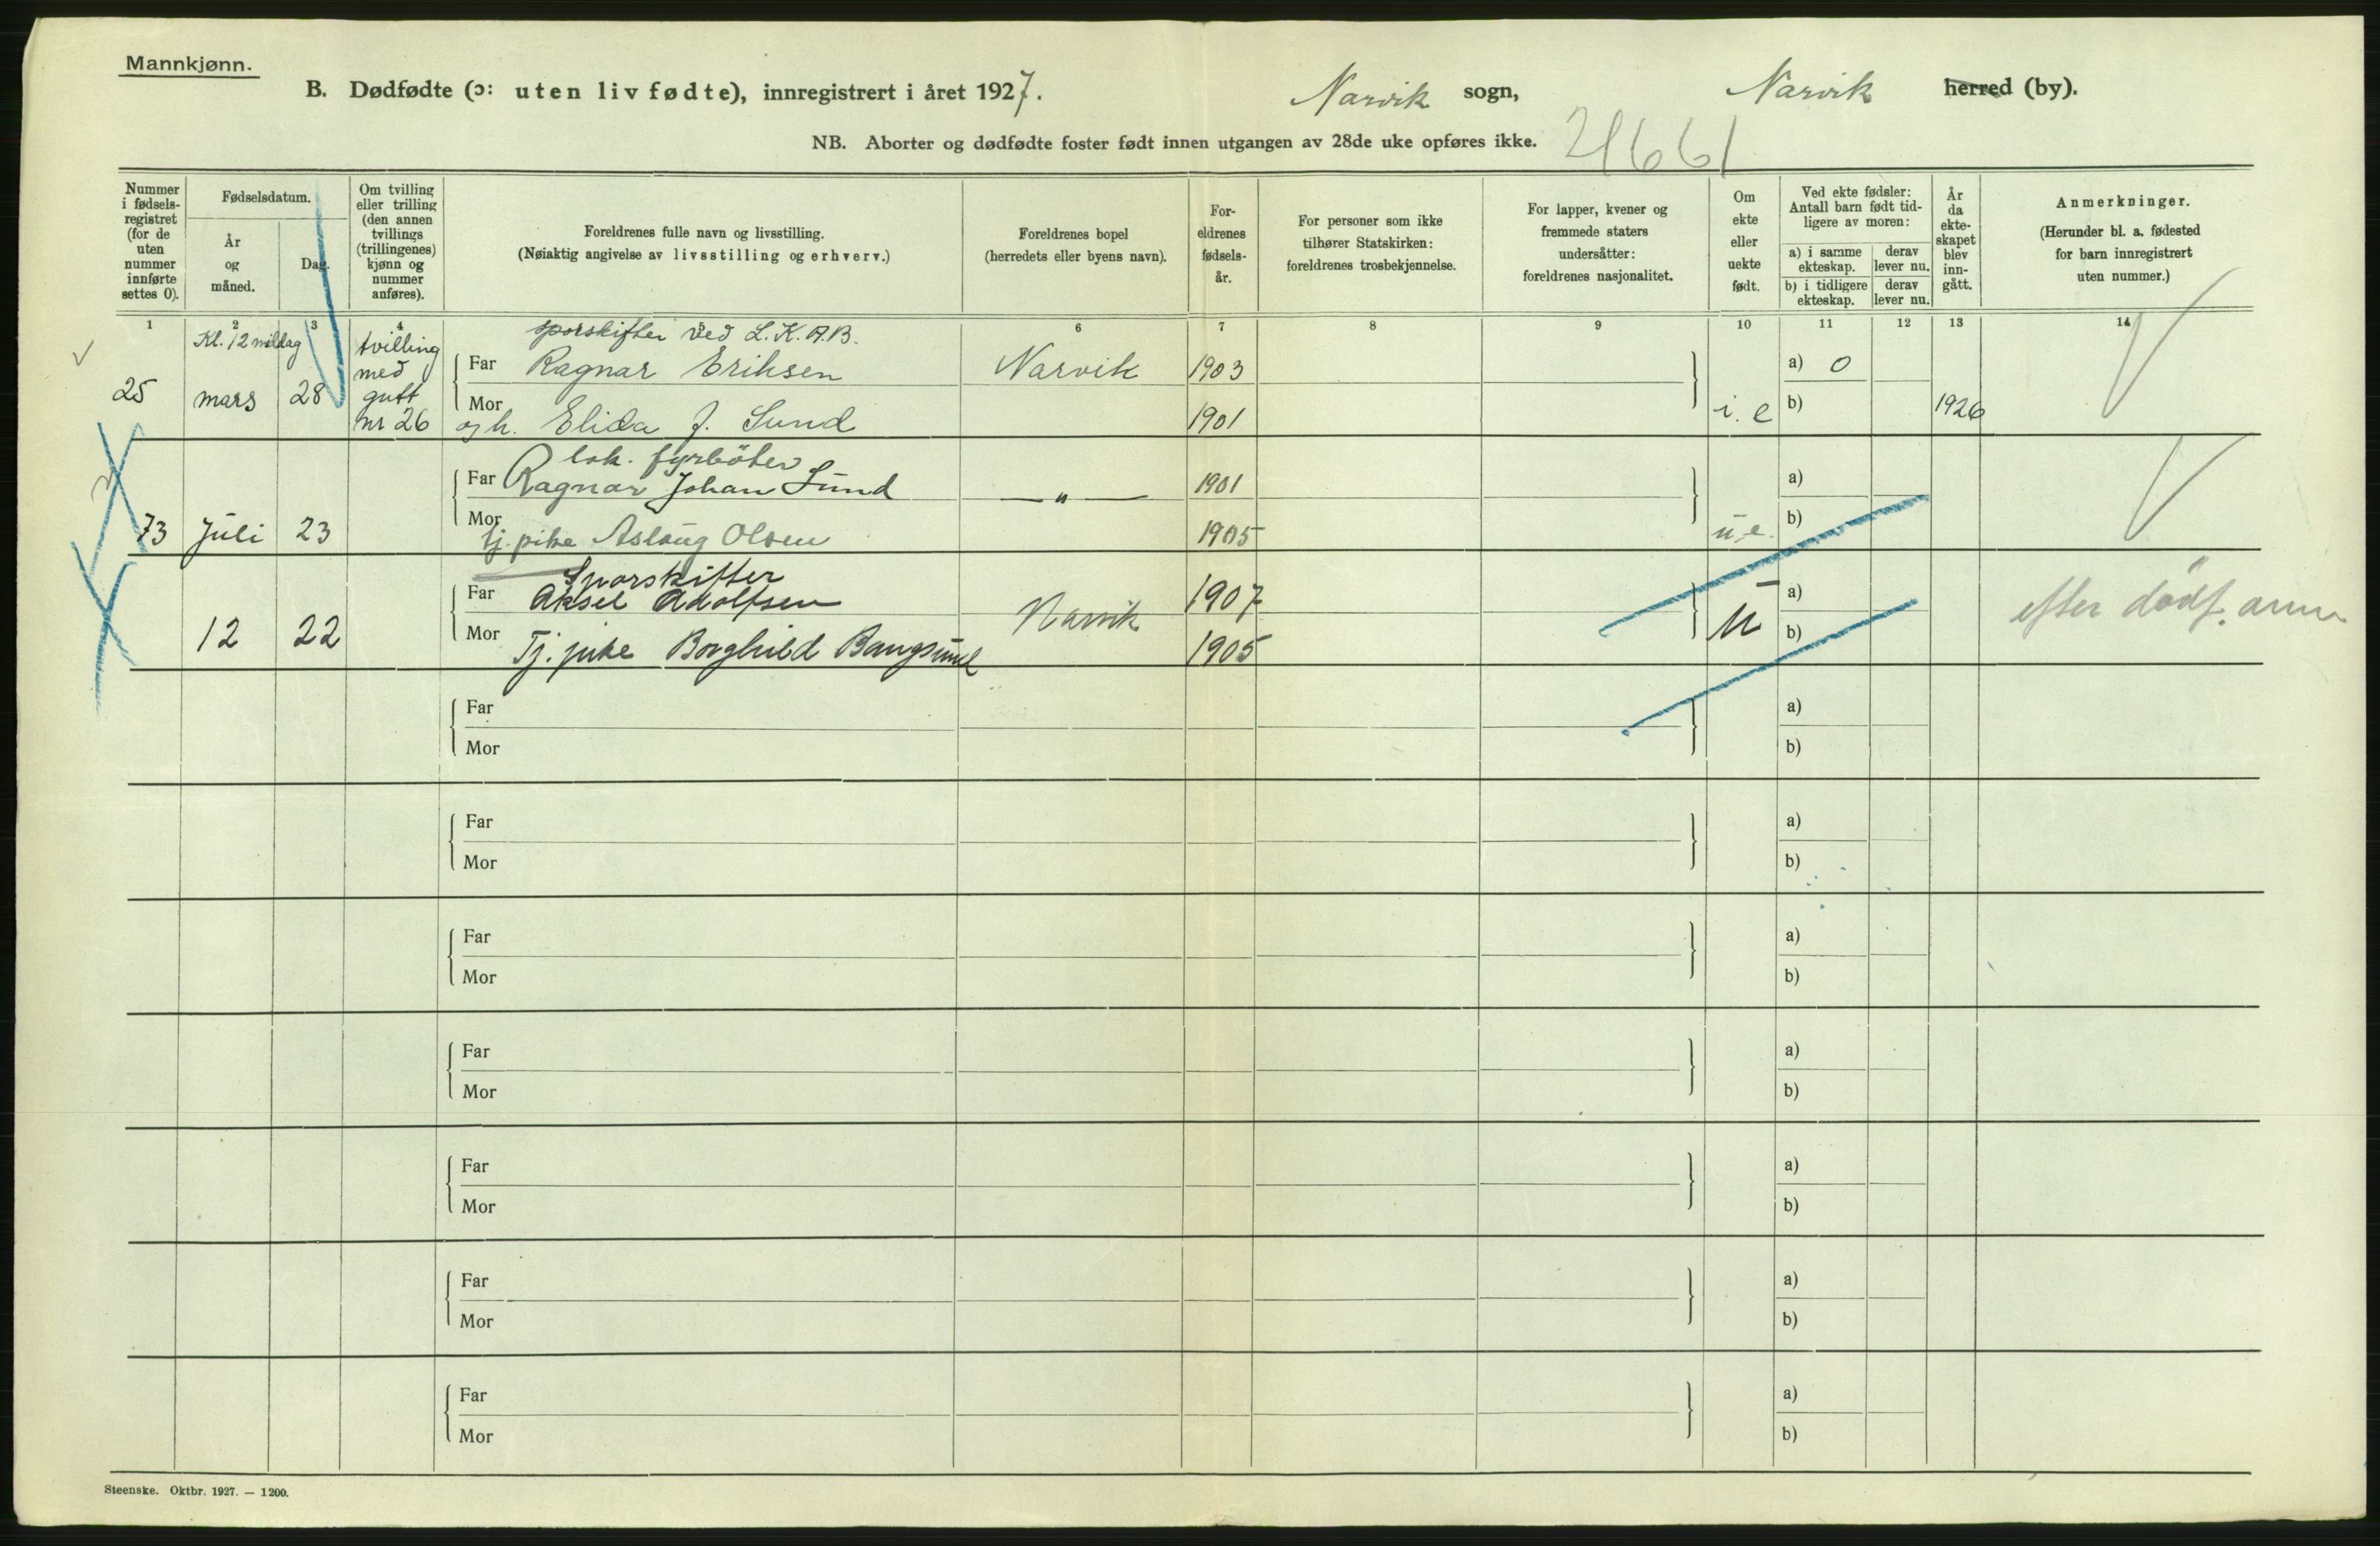 Mannkjønn.
B. Dødfødte (ɔ: uten liv fødte), innregistrert i året 1927. Narvik sogn, Narvik herred (by).
NB. Aborter og dødfødte foster født innen utgangen av 28de uke opføres ikke.
21661
Nummer i fødsels-
registret
(for de
uten
nummer
innførte
settes 0).
Fødselsdatum.
År
og
måned.
Dag.
Om tvilling
eller trilling
(den annen
tvillings
(trillingenes)
kjønn og
nummer
anføres).
Foreldrenes fulle navn og livsstilling.
(Nøiaktig angivelse av livsstilling og erhverv.)
Foreldrenes bopel
(herredets eller byens navn).
For-
eldrenes
fødsels-
år.
For personer som ikke
tilhører Statskirken:
foreldrenes trosbekjennelse.
For lapper, kvener og
fremmede staters
undersåtter:
foreldrenes nasjonalitet.
Om
ekte
eller
uekte
født.
Ved ekte fødsler:
Antall barn født tid-
ligere av moren:
a) i samme
ekteskap.
derav
lever nu.
b) i tidligere
ekteskap.
derav
lever nu.
År
da
ekte-
skapet
blev
inn-
gått.
Anmerkninger.
(Herunder bl. a. fødested
for barn innregistrert
uten nummer.)
1 2 3 4 5 6 7 8 9 10 11 12 13 14
Kl. 12 middag tvilling sporskifter ved L.K.A.B.
med Far Ragnar Eriksen Narvik 1903 a) 0
25 mars 28 gutt Mor
nr 26 og h. Elida J. Sund 1901 i. e b) 1926
lok. fyrböter
Far Ragnar Johan Sund — " — 1901 a)
Mor b)
73 Juli 23 tj. pike Aslaug Olsen 1905 u.e.
Sporskifter
Far Aksel Adolfsen 1907 a)
12 22 Mor Narvik U b) efter dödf. anm
Tj. pike Borghild Bangsund 1905
Far a)
Mor b)
Far a)
Mor b)
Far a)
Mor b)
Far a)
Mor b)
Far a)
Mor b)
Far a)
Mor b)
Far a)
Mor b)
Steenske. Oktbr. 1927. — 1200.